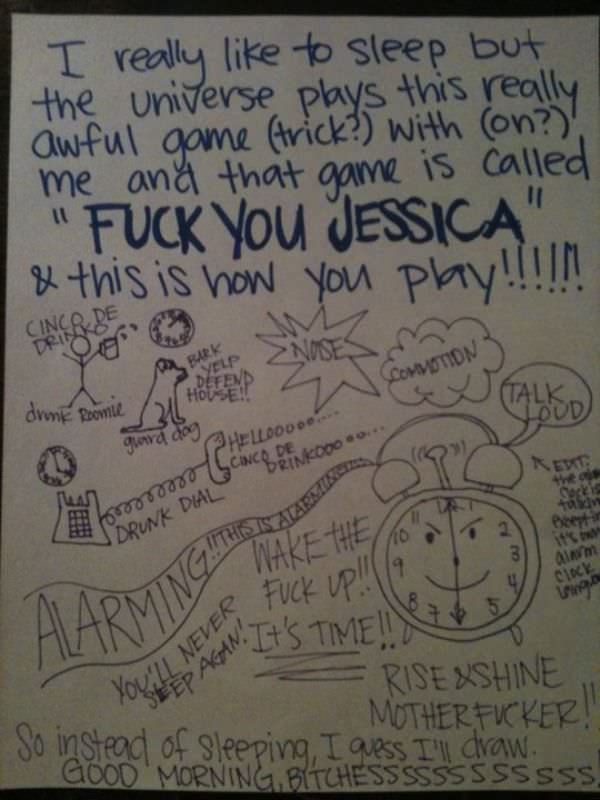 I really like to sleep but
the universe plays this really
awful game (trick?) with (on?)
me and that game is called
"FUCK YOU JESSICA"
& this is how you play!!!!!!
CINCO DE
DRINKO
drunk Roomie
BARK
YELP
DEFEND
HOUSE!!
guard dog
NOISE
COMMOTION
TALK
LOUD
HELLOOOOO.....
CINCO DE
DRINKOOOOOO...
DRUNK DIAL
EDIT:
the
clock is
talking
it's own
alarm
clock
ALARMING!!THIS IS ALARMING
WAKE THE
FUCK UP!!
IT'S TIME!!
YOU'LL NEVER
SLEEP AGAIN!
11
1
10
2
9
3
8
4
7
5
RISE & SHINE
MOTHERFUCKER!!
So instead of sleeping, I guess I'll draw.
GOOD MORNING, BITCHESSSSSSSSSSSS